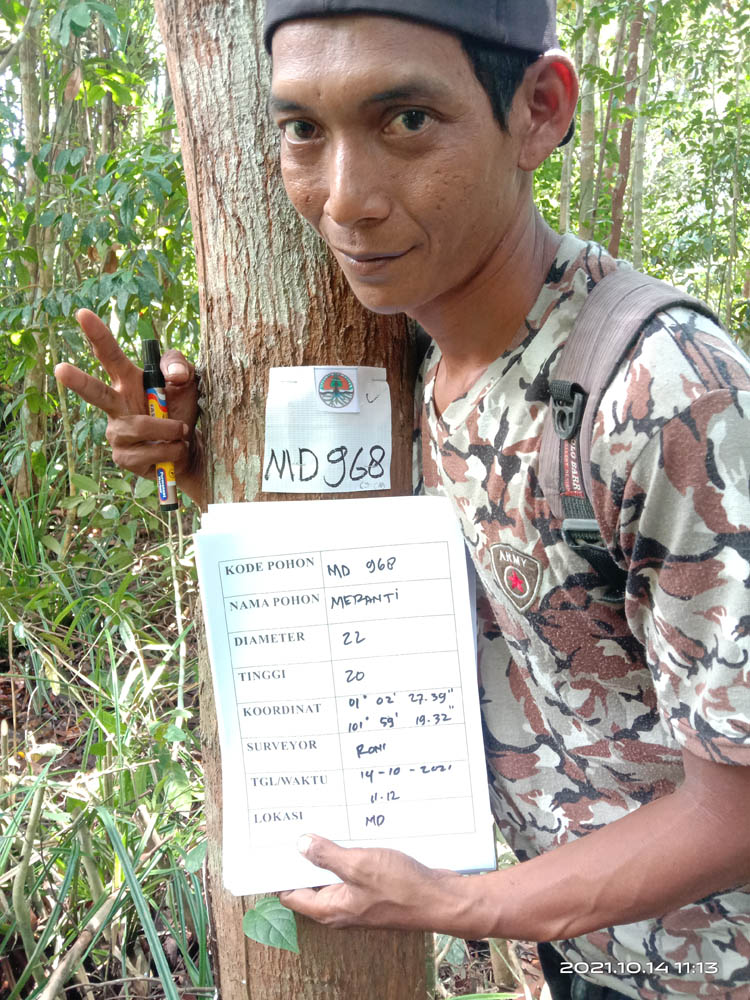 MD 968
KODE POHON MD 968
NAMA POHON MERANTI
DIAMETER 22
TINGGI 20
KOORDINAT 01° 02' 27.39"
101° 59' 19.32"
SURVEYOR RONI
TGL/WAKTU 14-10-2021
11.12
LOKASI MD
ARMY
2021.10.14 11:13